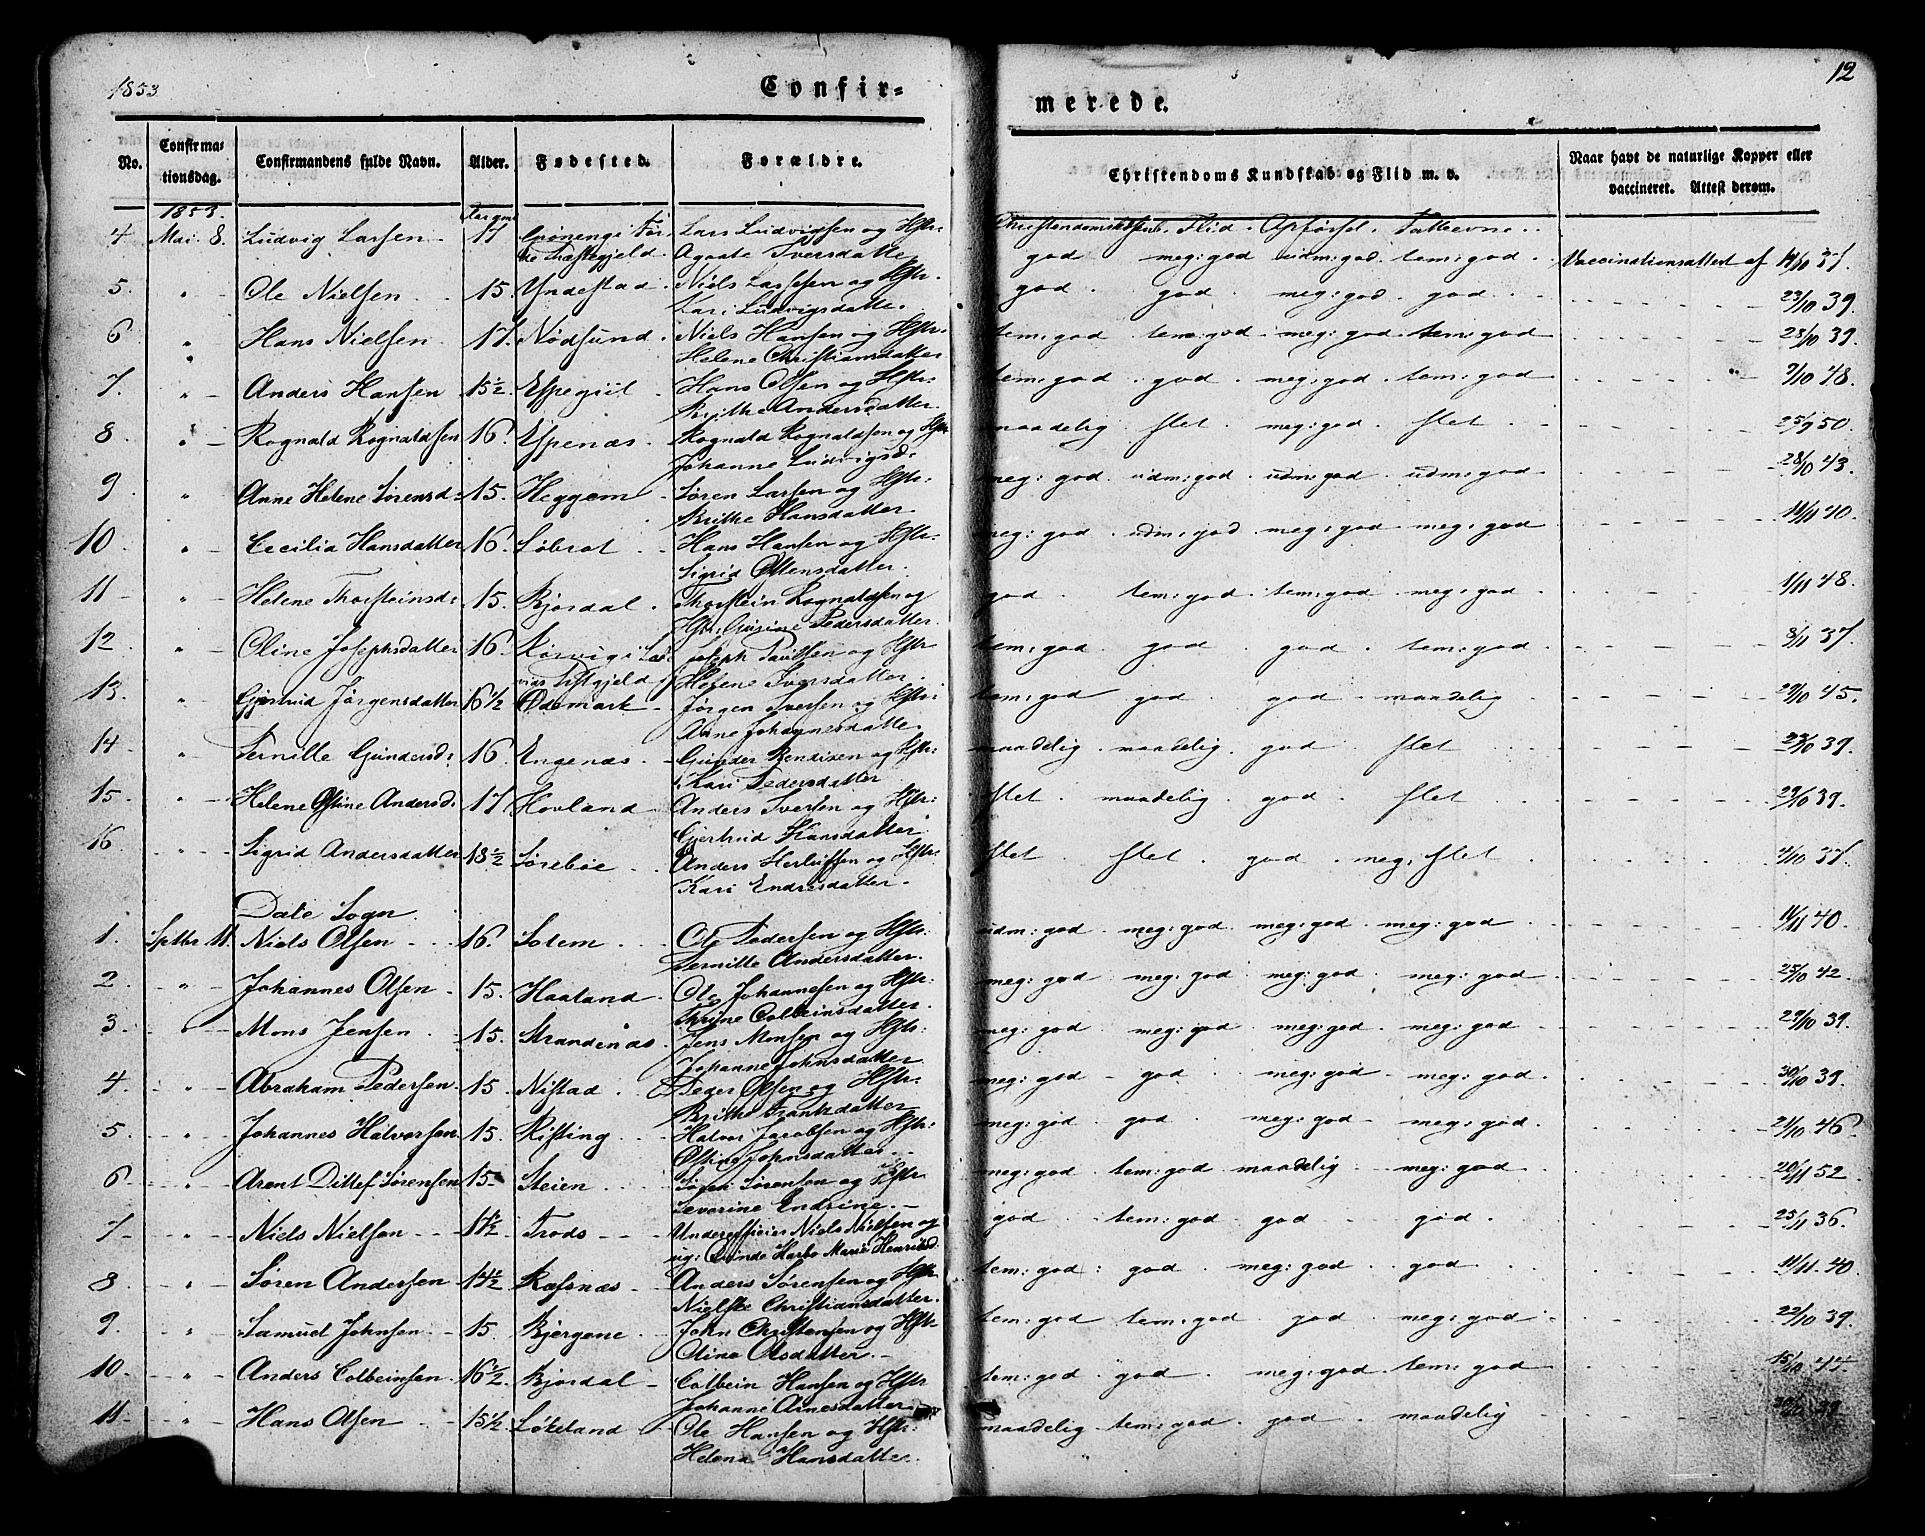 1853
Confir-
merede.
12
No.
Confirma-
tionsdag.
Confirmandens fulde Navn.
Alder.
Fødested.
Forældre.
Christendoms Kundskab og Flid m. v.
Naar havt de naturlige Kopper eller
vaccineret. Attest derom.
1853.
Flid. Opførsel.
4 Mai 8. Ludvig Larsen 17 Lars Ludvigsen og Hstr:
Præstegjeld. Agaate Iversdatter god meg: god udm: god. tem: god. Vaccinationsattest af 37.
5. " Ole Nielsen 15. Yndestad. Niels Larssen og Hstr. god god meg: god. god 23/10 39.
Kari Ludvigsdatter.
6 " Hans Nielsen 17. Nødsund. Niels Hansen og Hstr. tem: god tem: god meg: god tem: god 23/10 39.
Helene Christiansdatter
7. " Anders Hansen 15½. Espegiil Hans Olsen og Hstr: tem: god god. meg: god. tem: god 9/10 48.
Brithe Andersdatter.
8 " Rognald Rognaldsen 16. Espenæs. Rognald Rognaldsen og Hstr maadelig slet meg: god slet 25/9 50.
Johanne Ludvigsd:
9 " Anne Helene Sørensd: 15. Heggem Søren Larsen og Hstr: meg: god udm: god udm: god udm: god 28/10 43.
Brithe Hansdatter.
10. " Cecilia Hansdatter 16. Hans Hansen og Hstr: meg: god udm: god meg: god meg: god 14/11 40.
Sigrid Ottensdatter.
11 " Helene Thorsteinsd: 15. Bjordal. Thorstein Rognaldsen og god tem: god tem: god meg: god 1/11 48.
Hstr: Gurine Pedersdatter.
12 " Oline Josephsdatter 16. Joseph og Hstr tem: god god god tem: god 8/11 37.
Helene Iversdatter.
13. " Gjertrud Jørgensdatter 16½ Ødemark Jørgen Iversen og Hstr: tem: god god god maadelig 29/10 45.
Anne Johannesdatter
14 " Pernille Gundersd: 16. Engenæs. Gunder Bendixen og Hstr: maadelig. maadelig. god slet 23/10 39.
Kari Pedersdatter
15. " Helene Andersd: 17 Hovland Anders Iversen og Hstr: slet maadelig. god slet 29/10 39.
Gjertrud Hansdatter
16. " Sigrid Andersdatter 18½ Sørebøe Anders Herlufsen og Hstr: slet. slet god meg: slet 4/10 37.
Kari Endresdatter.
Dale Sogn.
1. Septbr 11. Niels Olsen 16. Solem Ole Pedersen og Hstr: udm: god meg: god. meg: god meg: god 14/11 40.
Pernille Andersdatter.
2 " Johannes Olsen 15. Haaland. Ole Johannesen og Hstr: meg: god meg: god meg: god meg: god 25/10 42.
Thrine Colbeinsdatter.
3. " Mons Jensen 15. Strandenæs. Jens Monsen og Hstr: meg: god meg: god meg: god meg: god 29/10 39.
Johanne Johnsdatter.
4 " Abraham Pedersen. 15 Nistad. Peder Olsen og Hstr: meg: god god meg: god meg: god. 30/10 39.
Brithe Frantzdatter
5 " Johannes Halvorsen 15. Kisting Halvor Jacobsen og Hstr: meg: god god meg: god meg: god. 21/10 46
Johnsdatter.
6 " Arent Ditlef Sørensen 15. Steien Søren Sørensen og Hstr meg: god tem: god maadelig meg: god 20/11 52.
Severine Endrine.
7 " Niels Nielsen 17½ Trods Underofficier Niels Nielsen og god tem: god god god. 25/11 36.
ug: Qvinde Marie Henriksd:
8 " Søren Andersen 14½ Ræfsnæs Anders Sørensen og Hstr tem: god: god. meg: god god 14/11 40.
Christiansdatter.
9. " Samuel Johnsen 15. Bjergene. John Christensen og Hstr. tem: god tem: god god meg: god 22/10 39.
Oline Olsdatter.
10. " Anders Colbeinsen. 16½. Bjordal Colbein Hansen og Hstr tem: god god. meg: god. tem: god 15/10 44.
Johanne Arnesdatter
11 " Hans Olsen 15½. Løkeland Ole Hansen og Hstr: maadelig tem: god. god maadelig 39.
Helene Hansdatter.